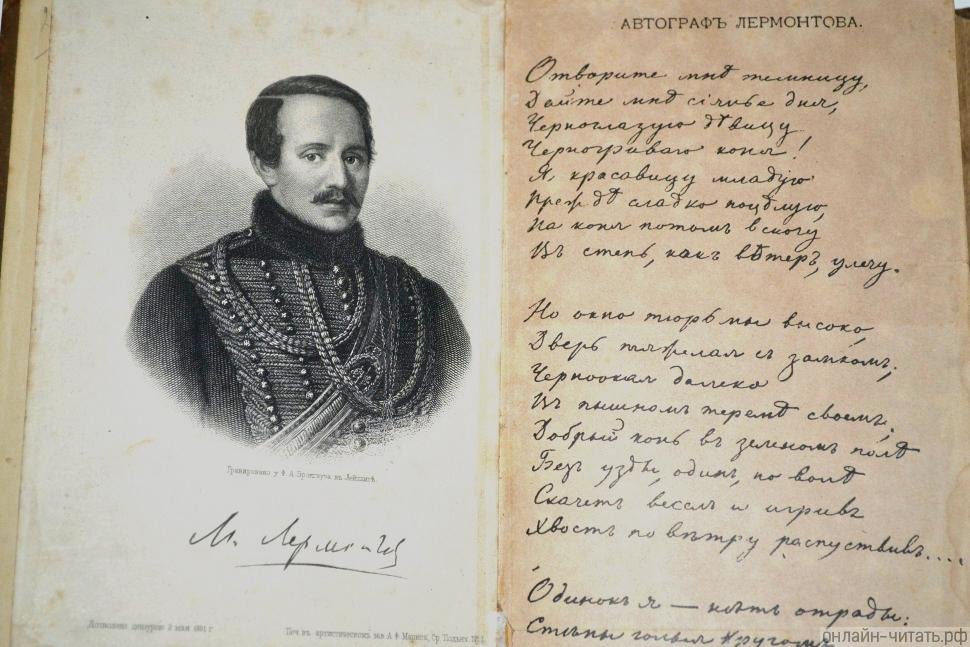 Гравировано у Ф. А. Брокгауза въ Лейпцигѣ.
М. Лермонтов
Дозволено цензурою 2 мая 1891 г
Печ. въ артистическом зав. А. Ф. Маркса, Ср. Подьяч. № 1.
АВТОГРАФЪ ЛЕРМОНТОВА.
Отворите мнѣ темницу,
Дайте мнѣ сіянье дня,
Черноглазую дѣвицу
Черногриваго коня!
Я красавицу младую
Прежде сладко поцѣлую,
На коня потомъ вскочу
Въ степь, какъ вѣтеръ, улечу.
Но окно тюрьмы высоко,
Дверь тяжелая съ замкомъ;
Черноокая далеко
Въ пышномъ теремѣ своемъ;
Добрый конь въ зеленомъ полѣ
Безъ узды, одинъ, по волѣ
Скачетъ веселъ и игривъ
Хвостъ по вѣтру распустивъ....
Одинокъ я — нѣтъ отрады:
Стѣны голыя кругомъ
онлайн-читать.рф